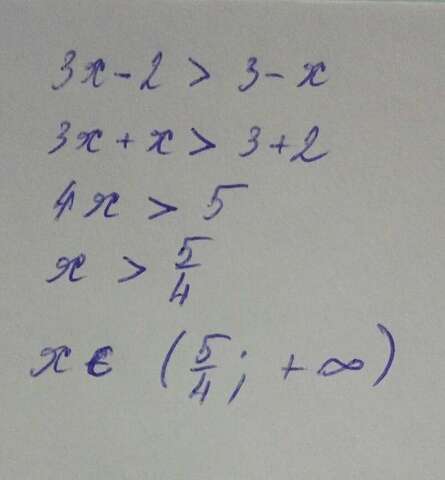 3x - 2 > 3 - x
3x + x > 3 + 2
4x > 5
x > 5/4
x ∈ (5/4; +∞)